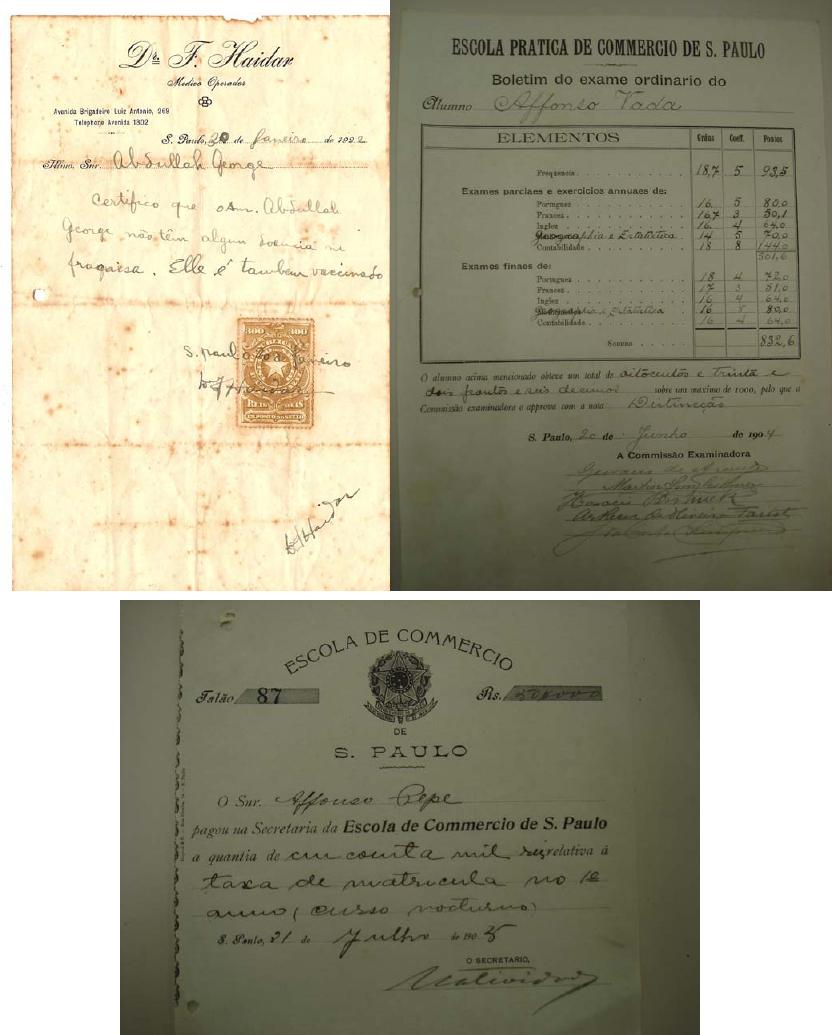 Dr. F. Haidar
Medico Operador
Avenida Brigadeiro Luiz Antonio, 269
Telephone Avenida 1802
S. Paulo, 20 de Janeiro de 1922
Illmo. Snr. Abdullah George
Certifico que o snr. Abdullah
George não têm algun doencia ne
fraquesa. Elle é tambem vaccinado
300 300
S. Paulo 20 Janeiro
REIS
F Haidar
ESCOLA PRATICA DE COMMERCIO DE S. PAULO
Boletim do exame ordinario do
Alumno Affonso Vada
ELEMENTOS Gráus Coeff. Pontos
Frequencia 18,7 5 93,5
Exames parciaes e exercicios annuaes de:
Portuguez 16 5 80,0
Francez 16,7 3 50,1
Inglez 16 4 64,0
Geographia e Estatistica 14 5 70,0
Contabilidade 18 8 144,0
501,6
Exames finaes de:
Portuguez 18 4 72,0
Francez 17 3 51,0
Inglez 16 4 64,0
Geographia e Estatistica 16 5 80,0
Contabilidade 16 4 64,0
Somma 832,6
O alumno acima mencionado obteve um total de oitocentos e trinta e
dois pontos e seis decimos sobre um maximo de 1000, pelo que a
Commissão examinadora o approva com a nota Distincção
S. Paulo, 20 de Junho de 1904
A Commissão Examinadora
ESCOLA DE COMMERCIO
Talão 87 Rs. 50$000
DE
S. PAULO
O Snr. Affonso Pepe
pagou na Secretaria da Escola de Commercio de S. Paulo
a quantia de cincoenta mil reis relativa á
taxa de matricula no 1º
anno (curso nocturno)
S. Paulo, 21 de Julho de 1905
O SECRETARIO,